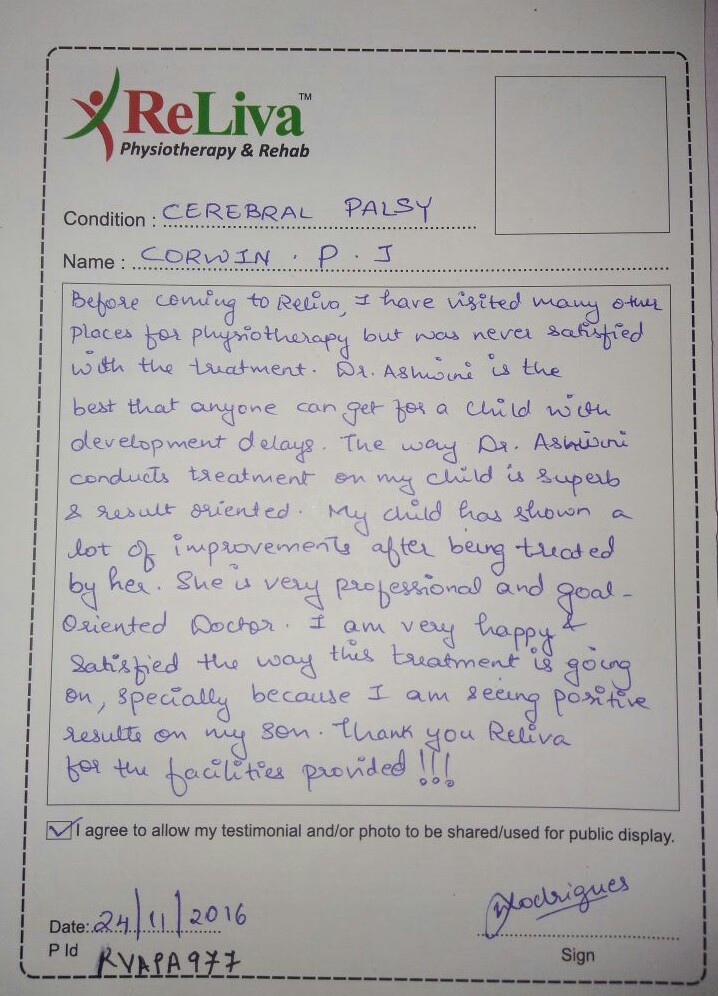 ReLiva™
Physiotherapy & Rehab
Condition : CEREBRAL PALSY
Name : CORWIN . P . J
Before coming to Reliva, I have visited many other
places for physiotherapy but was never satisfied
with the treatment. Dr. Ashwini is the
best that anyone can get for a child with
development delays. The way Dr. Ashwini
conducts treatment on my child is superb
& result oriented. My child has shown a
lot of improvements after being treated
by her. She is very professional and goal-
Oriented Doctor. I am very happy &
Satisfied the way this treatment is going
on, specially because I am seeing positive
results on my son. Thank you Reliva
for the facilities provided !!!
I agree to allow my testimonial and/or photo to be shared/used for public display.
Date: 24/11/2016
Rodrigues
P Id RVAPA977
Sign